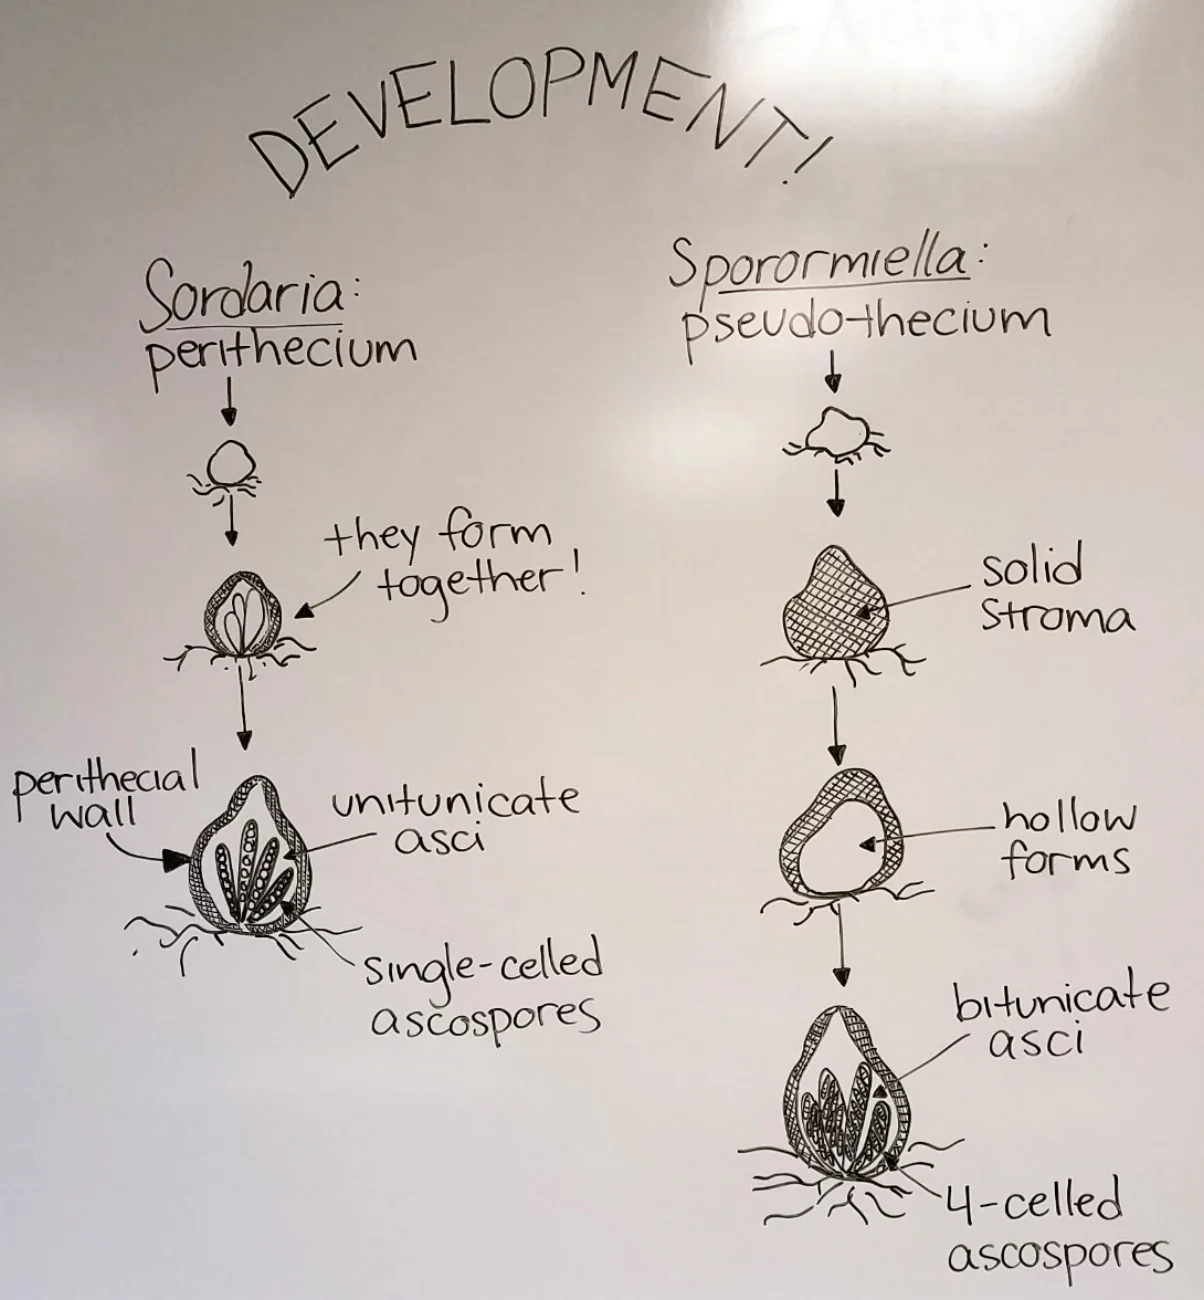 DEVELOPMENT!
Sordaria:
perithecium
they form
together!
perithecial
wall
unitunicate
asci
single-celled
ascospores
Sporormiella:
pseudo-thecium
solid
stroma
hollow
forms
bitunicate
asci
4-celled
ascospores